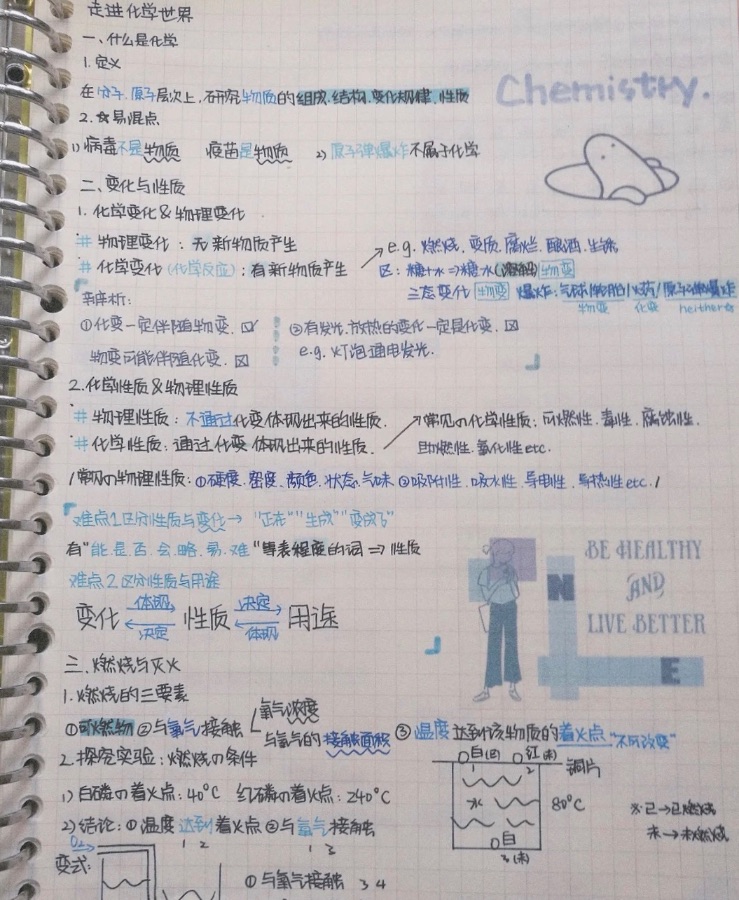 走进化学世界
一、什么是化学
1.定义
在分子、原子层次上,研究物质的组成、结构、变化规律、性质
Chemistry.
2.☆易混点
1) 病毒不是物质 疫苗是物质 2) 原子弹爆炸不属于化学
二、变化与性质
1.化学变化&物理变化
# 物理变化:无新物质产生
e.g. 燃烧、变质、腐烂、酿酒、生锈
# 化学变化(化学反应):有新物质产生
区:糖+水⇒糖水(溶解)物变
三态变化 物变 爆炸:气球/轮胎/火药/原子弹爆炸
物变 化变 neither
辨析:
①化变一定伴随物变. ☑
②有发光、放热的变化一定是化变. ☒
物变可能伴随化变. ☒
e.g. 灯泡通电发光.
2.化学性质&物理性质
# 物理性质:不通过化变体现出来的性质.
常见の化学性质:可燃性、毒性、腐蚀性、
# 化学性质:通过化变体现出来的性质.
助燃性、氧化性etc.
/常见の物理性质:①硬度、密度、颜色、状态、气味 ②吸附性、吸水性、导电性、导热性etc./
难点1.区分性质与变化→ "正在""生成""变成了"
有"能、是否、会、略、易、难"等表程度的词⇒性质
难点2.区分性质与用途
变化 体现→ ←决定 性质 决定→ ←体现 用途
BE HEALTHY
AND
LIVE BETTER
N
E
三、燃烧与灭火
1.燃烧的三要素
①可燃物 ②与氧气接触
氧气浓度
与氧气的接触面积
③温度达到该物质的着火点"不可改变"
2.探究实验:燃烧の条件
1) 白磷の着火点:40°C 红磷の着火点:240°C
白(已) 红(未)
1 2 铜片
水 80°C
白
3(未)
※已→已燃烧
未→未燃烧
2) 结论:①温度达到着火点 ②与氧气接触
1 2 1 3
变式:
O₂
①与氧气接触 3 4